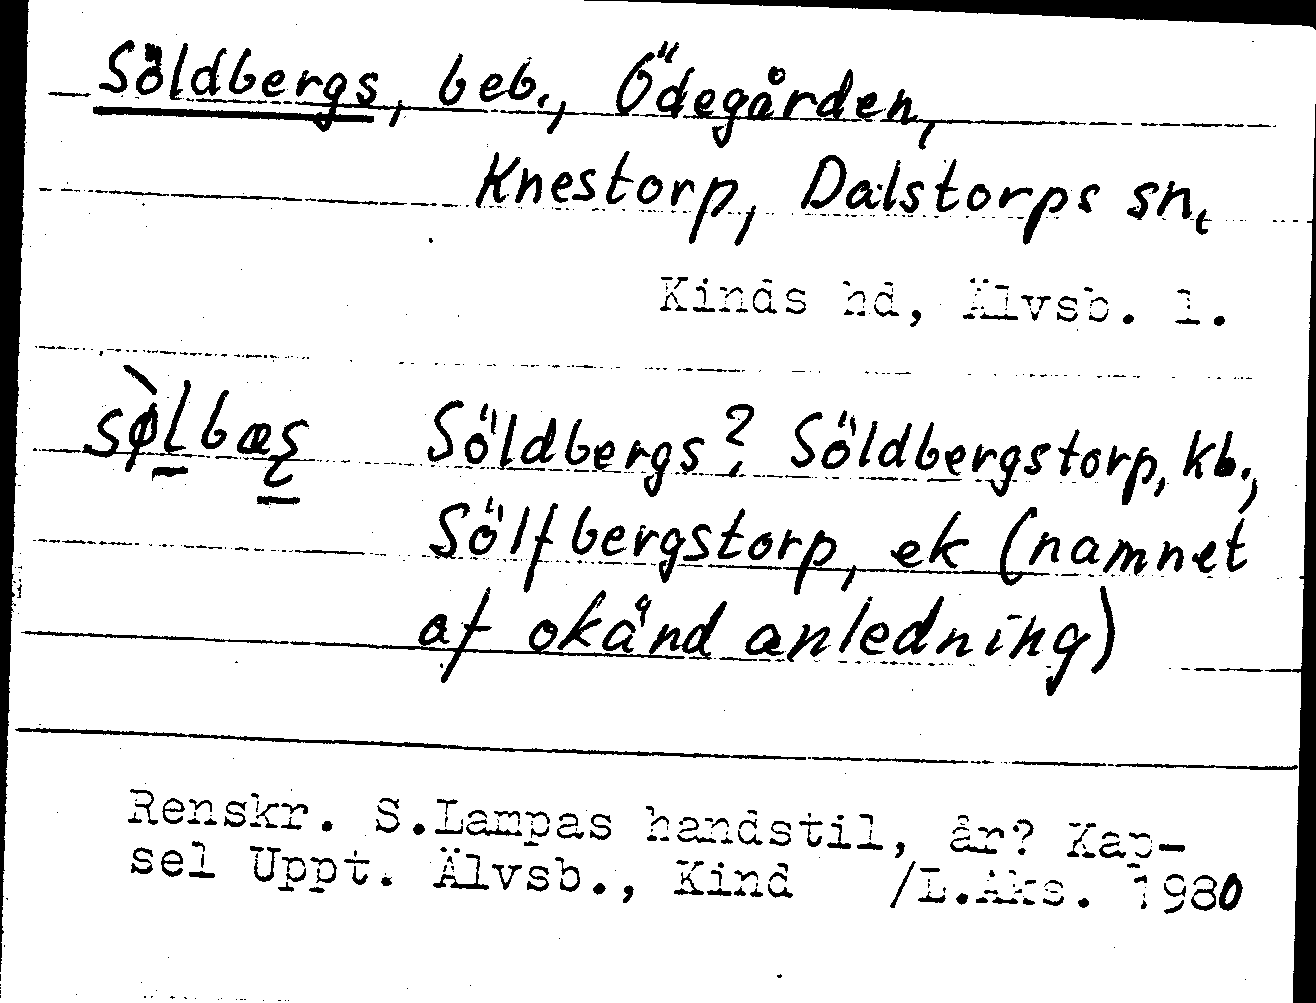 Söldbergs, beb., Ödegården,
Knestorp, Dalstorps sn,
Kinds hd, Älvsb. l.
sø̀lbæs Söldbergs? Söldbergstorp, kb.,
Sölfbergstorp, ek (namnet
af okånd anledning)
Renskr. S.Lampas handstil, år? Kap-
sel Uppt. Älvsb., Kind /L.Aks. 1980